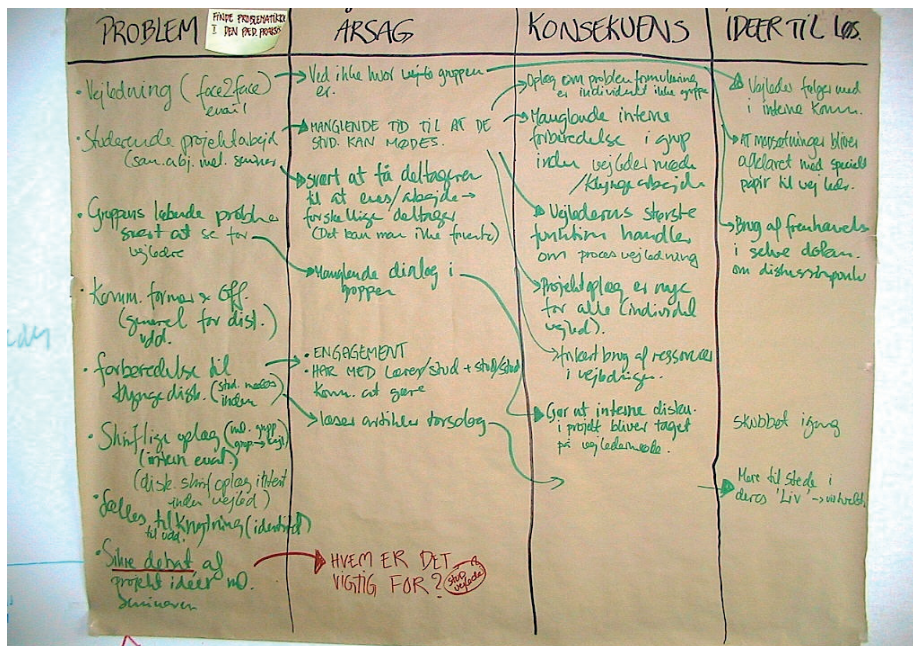 PROBLEM
FINDE PROBLEMATIKKER
I DEN PÆD. PRAKSIS
ÅRSAG
KONSEKVENS
IDEER TIL LØS.
• Vejledning (face2face)
email
• Studerende projektarbejd
(sam.arb. mel. seminer
• Gruppens løbende proble
svært at se for
vejledere
• Komm. former × Off.
(generel for dist.)
udd.
• forberedelse til
klyngedisk. (stud. mødes
inden)
• Skriftlige oplæg (ml. grupp
(intern eval)
(disk. skrif oplæg internt
inden vejled)
• fælles tilknytning (identitet)
til udd.
• Sikre debat af
projekt idéer ml.
seminaren
Ved ikke hvor vejle gruppen
er.
MANGLENDE TID TIL AT DE
STUD. KAN MØDES.
svært at få deltageren
til at enes/arbejde →
forskellige deltager
(Det kan man ikke forente)
Manglende dialog i
gruppen
• ENGAGEMENT
• HAR MED LÆRER/STUD + STUD/STUD
komm. at gøre
læser artikler torsdag
HVEM ER DET
VIGTIG FOR?
stud
vejlede
Oplæg om problemformulering
er individuel ikke gruppe
Manglende interne
forberedelse i grup
inden vejledermøde
/klyngearbejde
Vejlederens største
funktion handler
om proces vejledning
Projektoplæg er nye
for alle (individuel
vejled).
forkert brug af ressourcer
i vejledninge.
Gør at interne disku.
i projekt bliver taget
på vejledermøde.
Vejleder følger med
i interne komm.
At modsætninger bliver
afklaret med speciell
papir til vejleder.
Brug af fremhævelse
i selve dokum.
om diskussionspunkt
skubbet igang
Mere til stede i
deres 'Liv' →